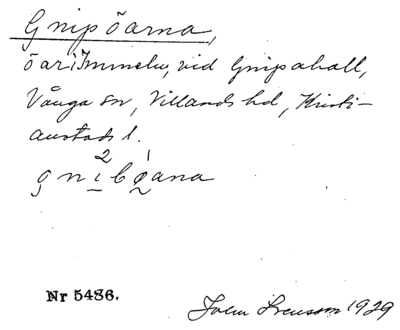 Gnipöarna,
öar i Immeln, vid Gnipahall,
Vånga sn, Villands hd, Kristi-
anstads l.
gnibøana
2 1
Nr 5486.
John Svensson 1929